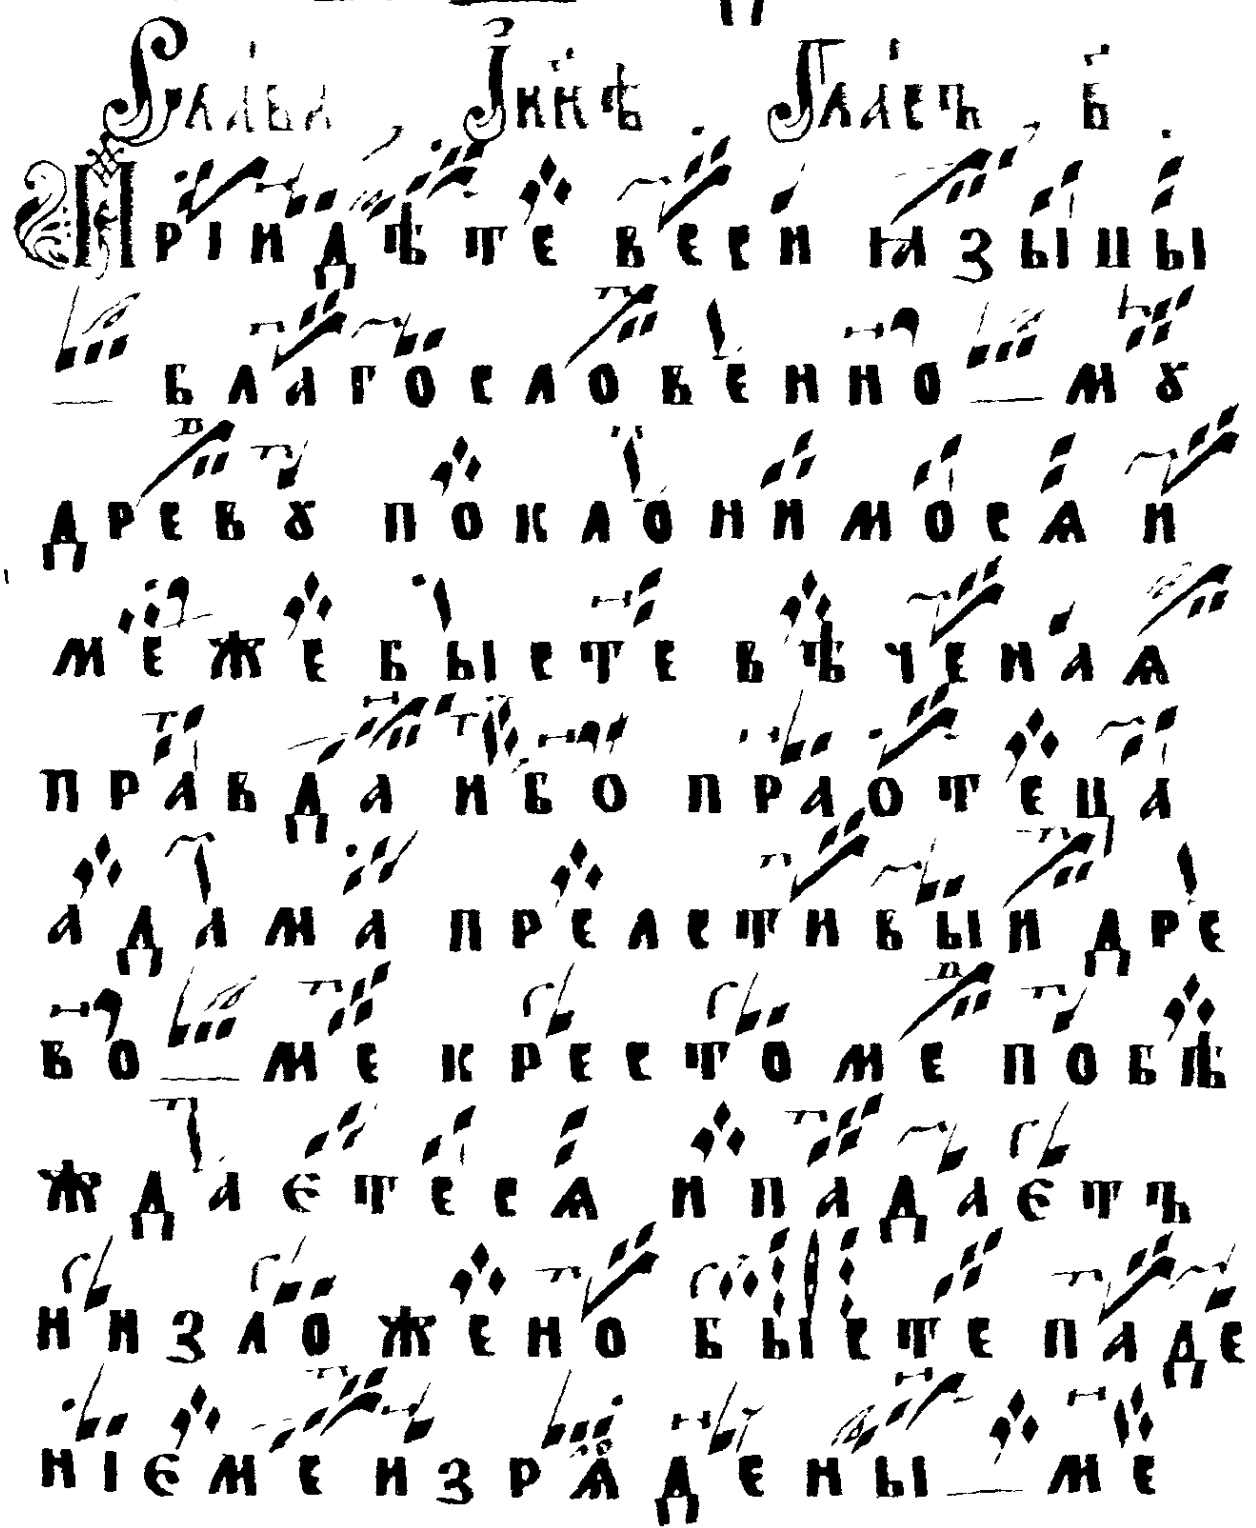 Слава , Інынѣ . Гласъ , в҃ .
Прїидѣте веси ꙗзыцы
благословенному
древу поклонимосѧ и
меже бысте вѣченаѧ
правда ибо праотеца
адама прелестивыи дре
воме крестоме побѣ
ждаєтесѧ и падаєтъ
низложено бысте паде
нїєме изрѧдены ме